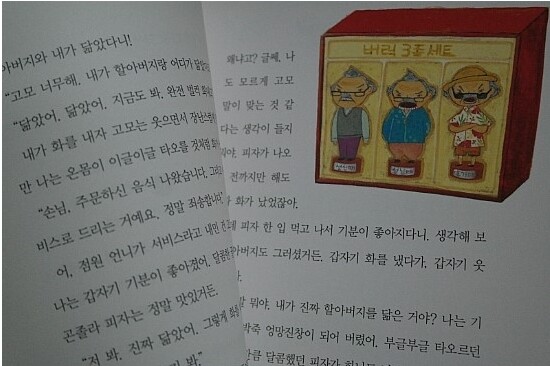 아버지와 내가 닮았다니!
"고모 너무해. 내가 할아버지랑 어디가 닮았
"닮았어. 닮았어. 지금도 봐. 완전 벌컥
내가 화를 내자 고모는 웃으면서
만 나는 온몸이 이글이글 타오를 것처럼
"손님, 주문하신 음식 나왔습니다.
비스로 드리는 거예요. 정말 죄송합니다."
어, 점원 언니가 서비스라고 내민
나는 갑자기 기분이 좋아졌어. 달콤한
곤졸라 피자는 정말 맛있거든.
"저 봐. 진짜 닮았어. 그렇게
봐."
왜냐고? 글쎄, 나
도 모르게 고모
말이 맞는 것 같
다는 생각이 들지
뭐야. 피자가 나오
전까지만 해도
화가 났었잖아.
피자 한 입 먹고 나서 기분이 좋아지다니. 생각해 보
아버지도 그러셨거든. 갑자기 화를 냈다가, 갑자기 웃
뭐야. 내가 진짜 할아버지를 닮은 거야? 나는 기
엉망진창이 되어 버렸어. 부글부글 타오르던
큼 달콤했던 피자가
버럭 3종세트